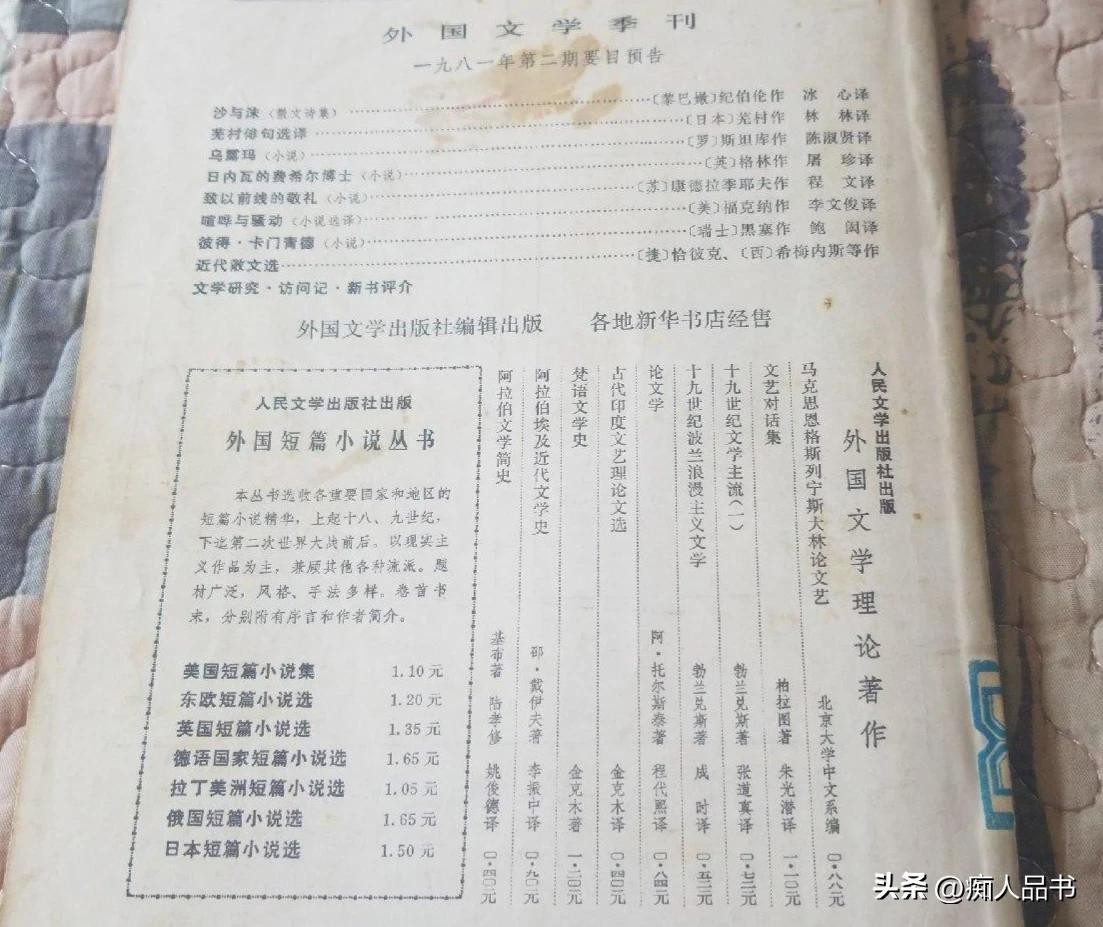 外国文学季刊
一九八一年第二期要目预告
沙与沫（散文诗集）……〔黎巴嫩〕纪伯伦作 冰 心译
芜村俳句选译……〔日本〕芜村作 林 林译
乌露玛（小说）……〔罗〕斯坦库作 陈淑贤译
日内瓦的费希尔博士（小说）……〔英〕格林作 屠 珍译
致以前线的敬礼（小说）……〔苏〕康德拉季耶夫作 程 文译
喧哗与骚动（小说选译）……〔美〕福克纳作 李文俊译
彼得·卡门青德（小说）……〔瑞士〕黑塞作 鲍 闳译
近代散文选……〔捷〕恰彼克、〔西〕希梅内斯等作
文学研究·访问记·新书评介
外国文学出版社编辑出版 各地新华书店经售
人民文学出版社出版
外国文学理论著作
马克思恩格斯列宁斯大林论文艺 北京大学中文系编 〇·八八元
文艺对话集 柏拉图著 朱光潜译 一·一〇元
十九世纪文学主流（一） 勃兰兑斯著 张道真译 〇·七二元
十九世纪波兰浪漫主义文学 勃兰兑斯著 成 时译 〇·五二元
论文学 阿·托尔斯泰著 程代熙译 〇·八四元
古代印度文艺理论文选 金克木译 〇·四〇元
梵语文学史 金克木著 一·二〇元
阿拉伯埃及近代文学史 邵·戴伊夫著 李振中译 〇·九〇元
阿拉伯文学简史 基布著 陆孝修 姚俊德译 〇·四〇元
人民文学出版社出版
外国短篇小说丛书
本丛书选收各重要国家和地区的
短篇小说精华，上起十八、九世纪，
下迄第二次世界大战前后。以现实主
义作品为主，兼顾其他各种流派。题
材广泛，风格、手法多样。卷首书
末，分别附有序言和作者简介。
美国短篇小说集 1.10元
东欧短篇小说选 1.20元
英国短篇小说选 1.35元
德语国家短篇小说选 1.65元
拉丁美洲短篇小说选 1.05元
俄国短篇小说选 1.65元
日本短篇小说选 1.50元
头条 @痴人品书